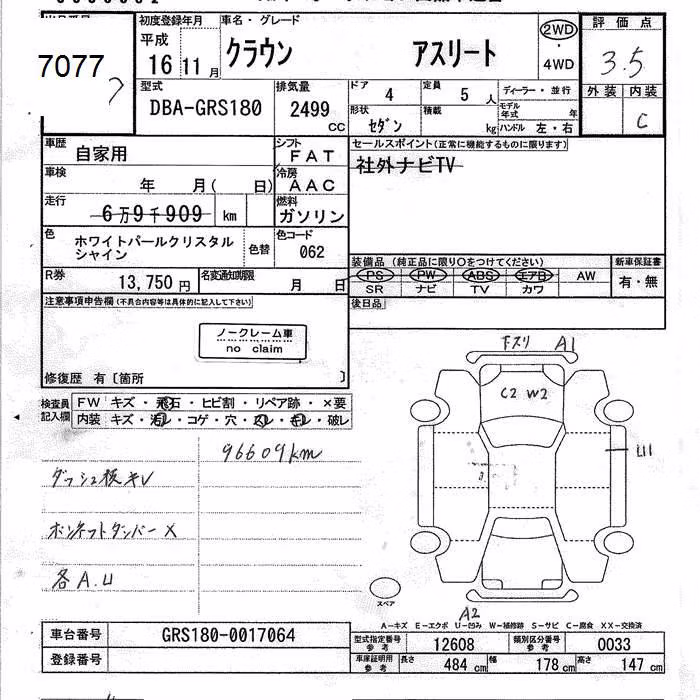 7077
初度登録年月
平成
16 11月
車名・グレード
クラウン アスリート
2WD
・
4WD
評価点
3.5
外装 内装
C
型式
DBA-GRS180
排気量
2499
CC
ドア
4
定員
5 人
ディーラー・並行
形状
セダン
積載
kg
モデル年式 年
ハンドル 左・右
車歴
自家用
シフト
FAT
セールスポイント(正常に機能するものに限ります)
社外ナビTV
車検
年 月( 日)
冷房
AAC
走行
6万9千909 km
燃料
ガソリン
色
ホワイトパールクリスタル
シャイン
色替
色コード
062
装備品(純正品に限り○をつけてください)
新車保証書
PS PW ABS エアB AW
有・無
SR ナビ TV カワ
R券
13,750円
名変通知期限
月 日
後日品
注意事項申告欄(不具合内容等は具体的に記入して下さい)
ノークレーム車
no claim
修復歴 有〔箇所 〕
検査員
記入欄
FW キズ・飛石・ヒビ割・リペア跡・×要
内装 キズ・汚レ・コゲ・穴・スレ・キレ・破レ
96609km
ボンネットダンパー X
各A.U
下スリ A1
C2 W2
A2
スペア
A-キズ E-エクボ U-凹み W-補修跡 S-サビ C-腐食 XX-交換済
車台番号
GRS180-0017064
型式指定番号
参考
12608
類別区分番号
参考
0033
登録番号
車庫証明用
参考
長さ
484 cm
幅
178 cm
高さ
147 cm